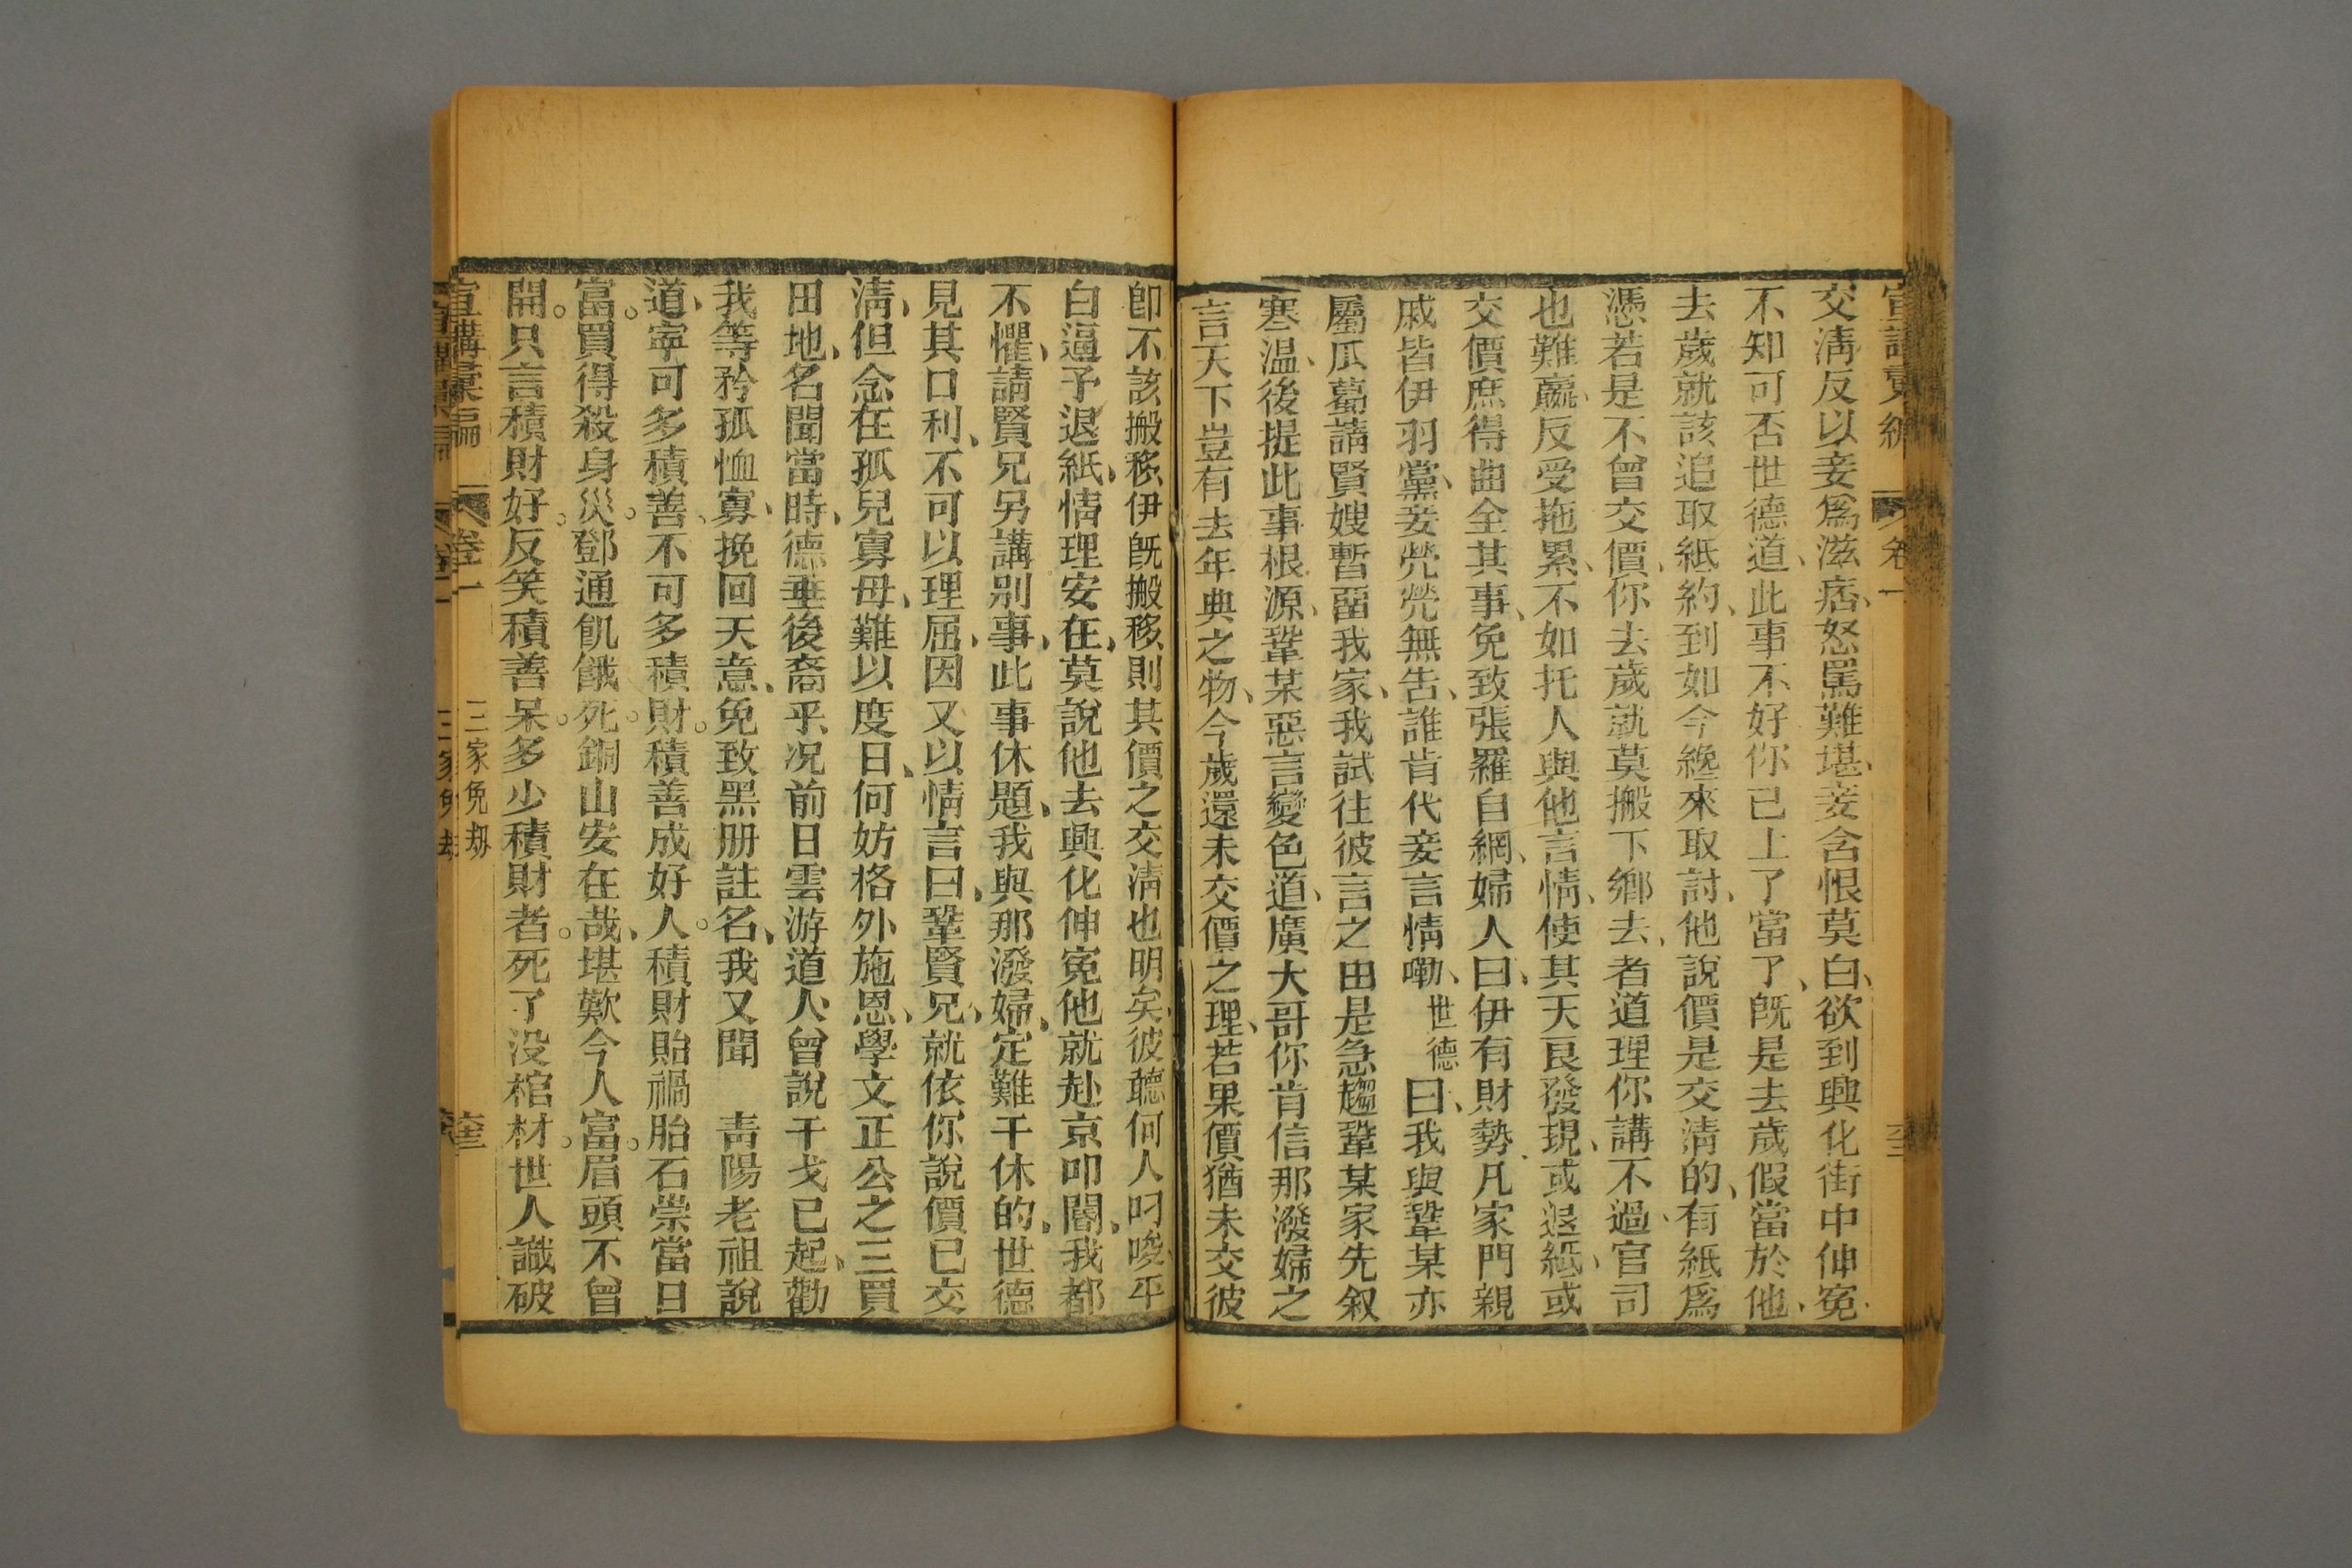 交清反以妾爲滋痞、怒罵難堪、妾含恨莫白、欲到興化街中伸寃、
不知可否世德道、此事不好你已上了當了、旣是去歲假當於他、
去歲就該追取紙約、到如今纔來取討、他說價是交清的、有紙爲
憑若是不曾交價、你去歲就莫搬下鄉去、者道理你講不過、官司
也難贏、反受拖累、不如托人與他言情、使其天良發現、或退紙、或
交價庶得曲全其事、免致張羅自網、婦人曰、伊有財勢凡家門親
戚皆伊羽黨、妾煢煢無告、誰肯代妾言情嘞、世德曰、我與鞏某亦
屬瓜葛請賢嫂暫畱我家、我試往彼言之田是急趨鞏某家先叙
寒温、後提此事根源、鞏某惡言變色道、廣大哥你肯信那潑婦之
言天下豈有去年典之物、今歲還未交價之理、若果價猶未交彼
卽不該搬移伊旣搬移則其價之交清也明矣、彼聽何人叼唆、平
白逼予退紙、情理安在、莫說他去興化伸寃他就赴京叩閽、我都
不懼、請賢兄另講别事、此事休題、我與那潑婦、定難干休的、世德
見其口利、不可以理屈、因又以情言曰、鞏賢兄、就依你說價已交
清、但念在孤兒寡母、難以度日、何妨格外施恩、學文正公之三買
田地、名聞當時、德垂後裔乎、况前日雲游道人、曾說干戈已起、勸
我等矜孤恤寡、挽回天意、免致黑册註名、我又聞　青陽老祖說
道、寧可多積善、不可多積財。積善成好人。積財貽禍胎石崇當日
富。買得殺身災。鄧通飢餓死。銅山安在哉、堪歎今人富。眉頭不曾
開。只言積財好。反笑積善呆。多少積財者。死了没棺材。世人識破
宣講彙編　卷一　三家免劫